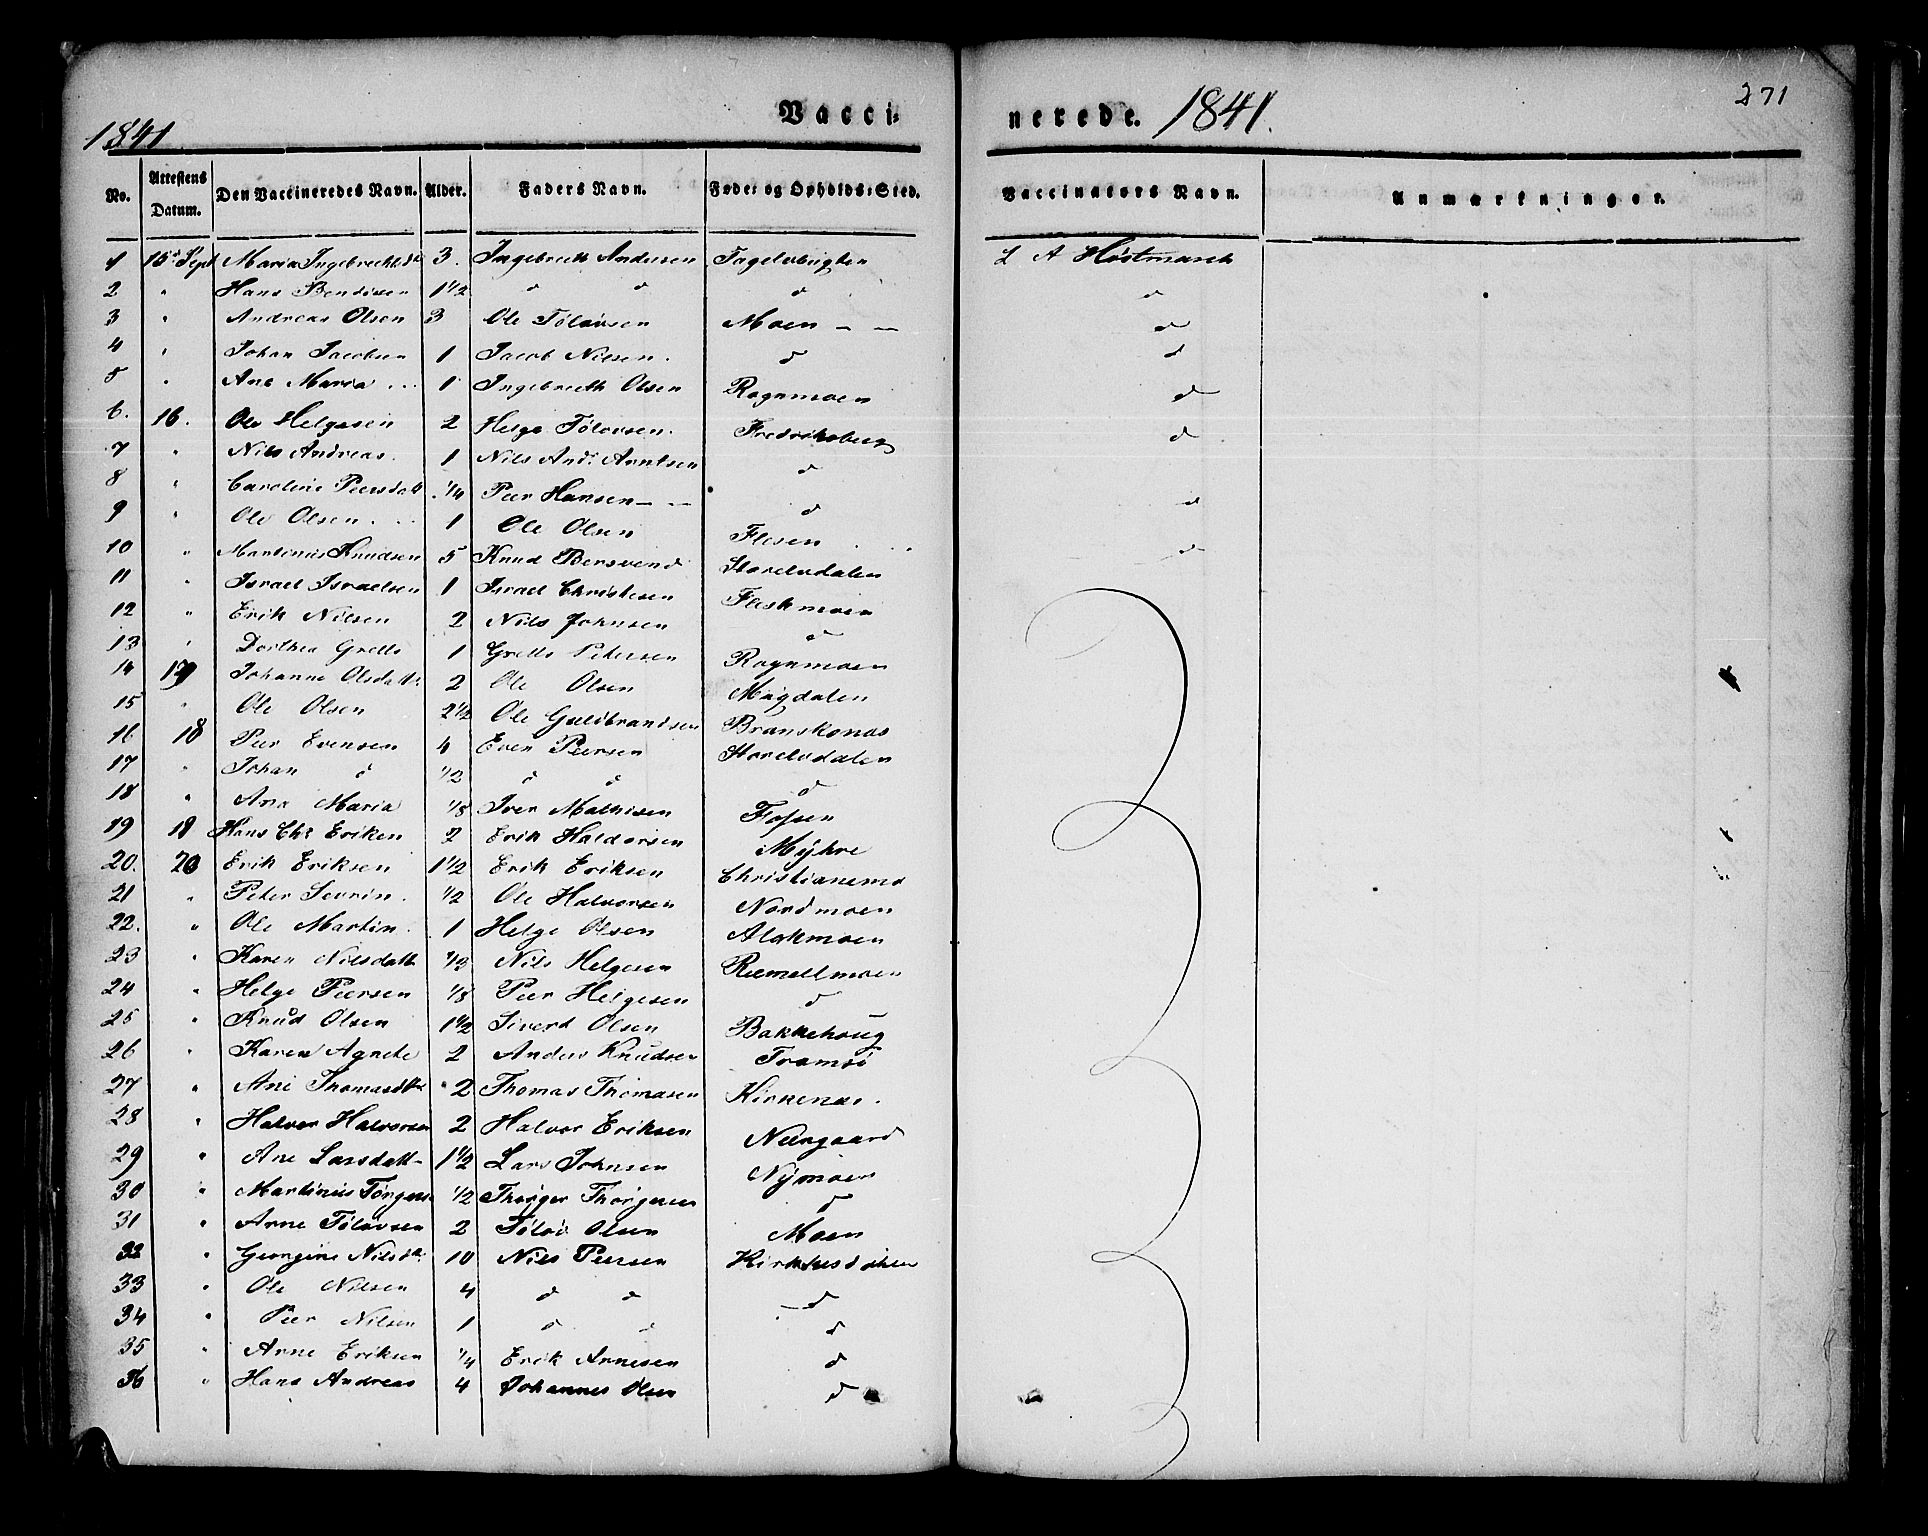 Vacci-
nerede. 1841.
271
1841
No. Attestens Datum. Den Vaccineredes Navn. Alder. Faders Navn. Føde- og Opholds-Sted. Vaccinators Navn. Anmærkninger.
1 15 Sept Maria 3. Ingebrecth Andersen L A Høstmarck
2 " Hans Bendixen 1 1/2 d d d d
3 " Andreas Olsen 3 Ole Tolovsen Moen — — d
4 " Johan Jacobsen 1 Jacob Nilsen. d d
5 " Ane Maria 1 Ingebrecth Olsen Rognmoen d
6. 16. Ole Helgesen 2 Helge Tolovsen. Fredriksberg d
7 " Nils Andreas. 1 Nils And. Arntsen d
8 " Caroline Peersdatt 1/4 Peer Hansen — — d d
9 " Ole Olsen 1 Ole Olsen Flesen d
10 " Martinus Knudsen 5 Knud Bersvend
11 " Israel Israelsen 1 Israel Christesen
12 " Erik Nilsen 2 Nils Johnsen d
13 " Dorthea Grelle 1 Grelle Petersen Rognmoen
14 17 Johanne Olsdatt 2 Ole Olsen Magdalen
15 " Ole Olsen 2 1/2 Ole Guldbrandsen
16 18 Peer Evensen 4 Even Peersen
17 " Johan d 1/2 d d d
18 " Ana Maria 1/8 Iver Mathisen Fossen
19 18 Hans Chr Eriken 2 Erik Haldorsen Myhre
20. 20 Erik Eriksen 1 1/2 Erik Eriksen
21 " Peter Sevrin. 1/2 Ole Halvorsen Nordmoen
22. " Ole Martin. 1 Helge Olsen Alekmoen
23 " Karen Nilsdatt 1/3 Nils Helgesen
24 " Helge Peersen 1/8 Peer Helgesen d
25 " Knud Olsen 1 1/2 Siverd Olsen Bakkehoug
26 " Karen Agnete 2 Anders Knudsen Tromsø
27 " Ane Thomasdtr 2 Thomas Thomasen Kirkenes.
28 " Halvor Halvorsen 2 Halvor Eriksen Neergaard
29 " Ane Larsdatt 1 1/2 Lars Johnsen Nymoen
30 " Martinus 1/2 d
31 " Arne Tolovsen 2 Tolov Olsen Moen
32 " Georgine Nilsdtr 10 Nils Peersen
33 " Ole Nilsen 4 d d — d
34 " Peer Nilsen 1 d d d
35 " Arne Eriksen 1/4 Erik Arnesen d
36 " Hans Andreas 4 Johannes Olsen d